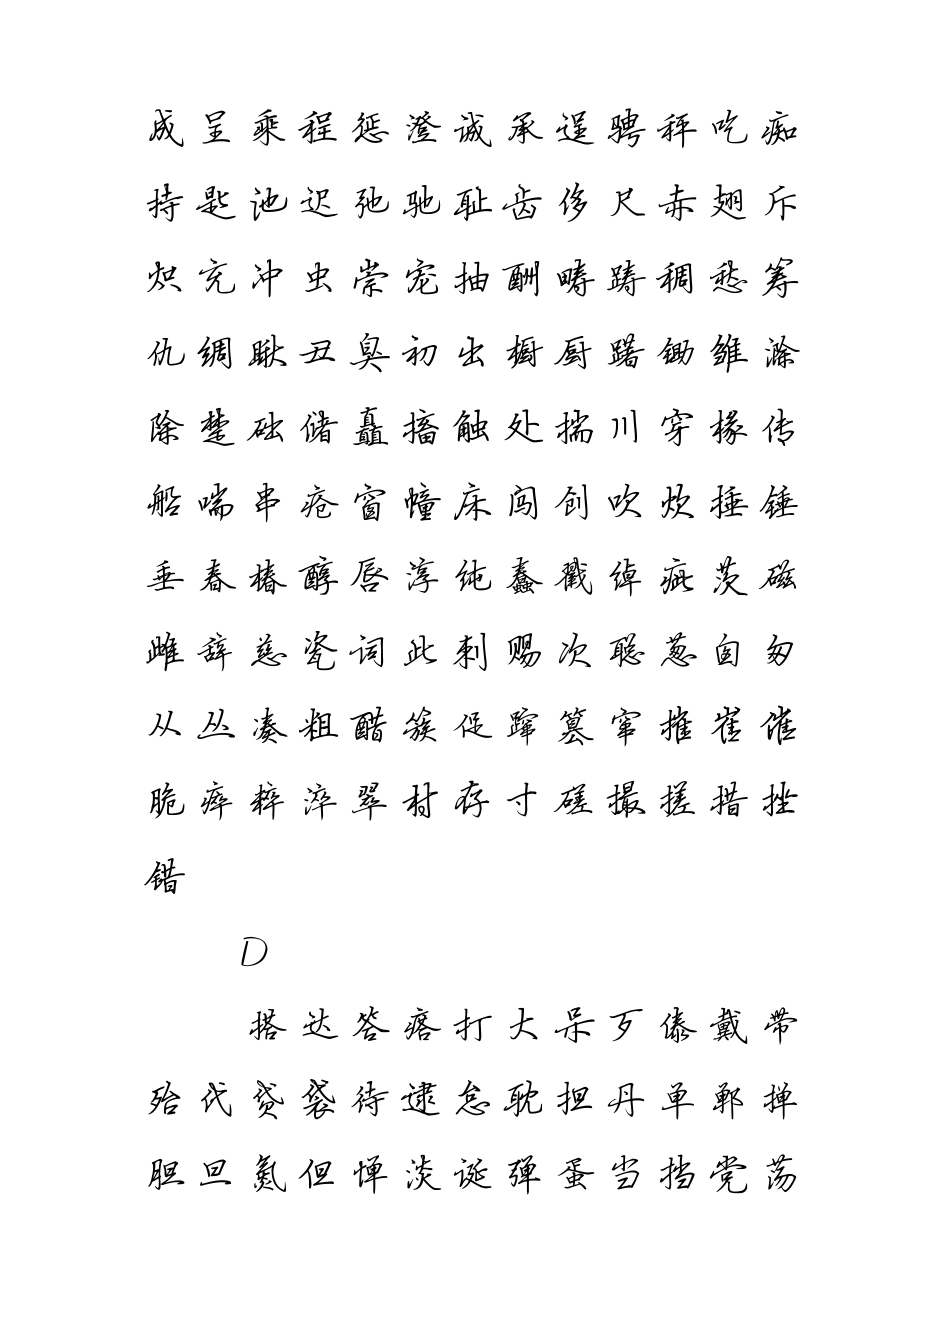 成呈乘程惩澄诚承逞骋秤吃痴
持匙池迟弛驰耻齿侈尺赤翅斥
炽充冲虫崇宠抽酬畴踌稠愁筹
仇绸瞅丑臭初出橱厨躇锄雏滁
除楚础储矗搐触处揣川穿椽传
船喘串疮窗幢床闯创吹炊捶锤
垂春椿醇唇淳纯蠢戳绰疵茨磁
雌辞慈瓷词此刺赐次聪葱囱匆
从丛凑粗醋簇促蹿篡窜摧崔催
脆瘁粹淬翠村存寸磋撮搓措挫
错
D
搭达答瘩打大呆歹傣戴带
殆代贷袋待逮怠耽担丹单郸掸
胆旦氮但惮淡诞弹蛋当挡党荡